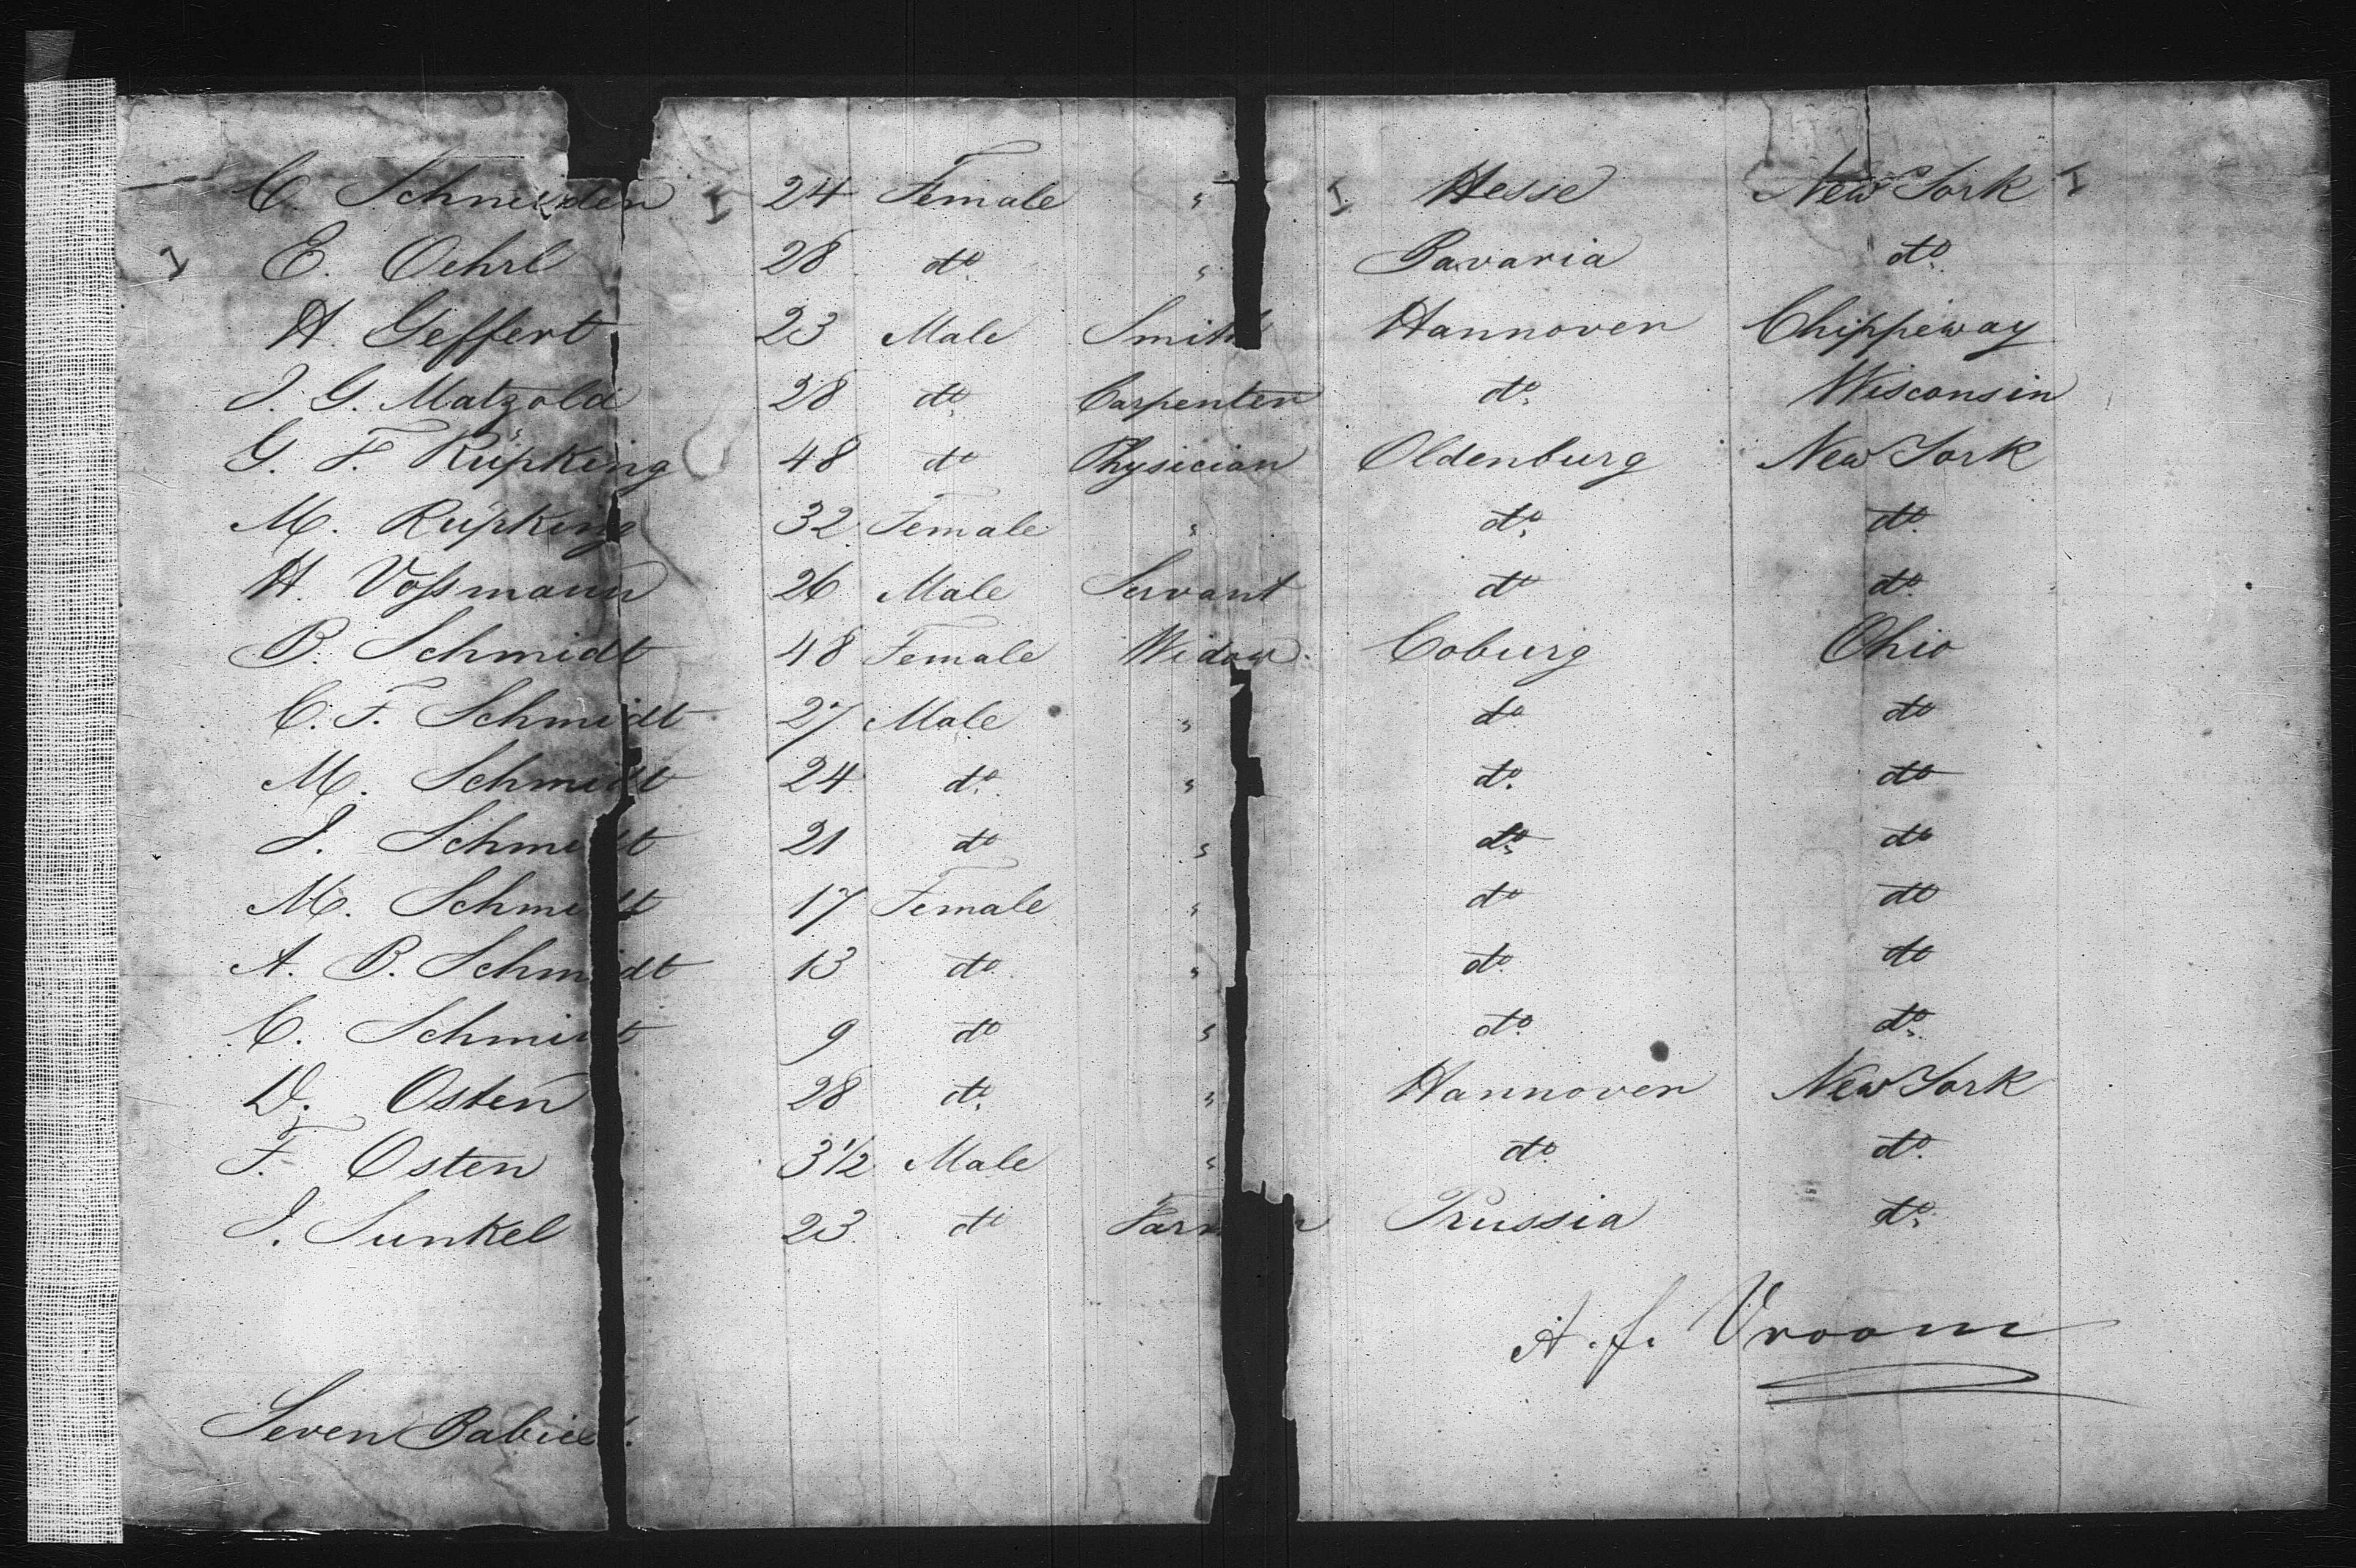 C. Schneider 24 Female " Hesse New York
E. Oehrl 28 do " Bavaria do
H. Geffert 23 Male Smith Hannover Chippeway
J. G. Matzold 28 do Carpenter do Wisconsin
G. F. Rüpking 48 do Physician Oldenburg New York
M. Rüpking 32 Female " do do
H. Voſsmann 26 Male Servant do do
B. Schmidt 48 Female Widow Coburg Ohio
C. F. Schmidt 27 Male " do do
M. Schmidt 24 do " do do
J. Schmidt 21 do " do do
M. Schmidt 17 Female " do do
A. B. Schmidt 13 do " do do
C. Schmidt 9 do " do do
D. Osten 28 do " Hannover New York
F. Osten 3 1/2 Male " do do
J. Sunkel 23 do Farmer Prussia do
A. f. Vroom
Seven Babies.